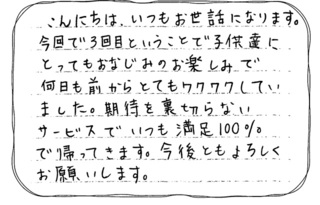 こんにちは、いつもお世話になります。
今回で3回目ということで子供達に
とってもおなじみのお楽しみで
何日も前からとてもワクワクしてい
ました。期待を裏切らない
サービスでいつも満足100%
で帰ってきます。今後ともよろしく
お願いします。